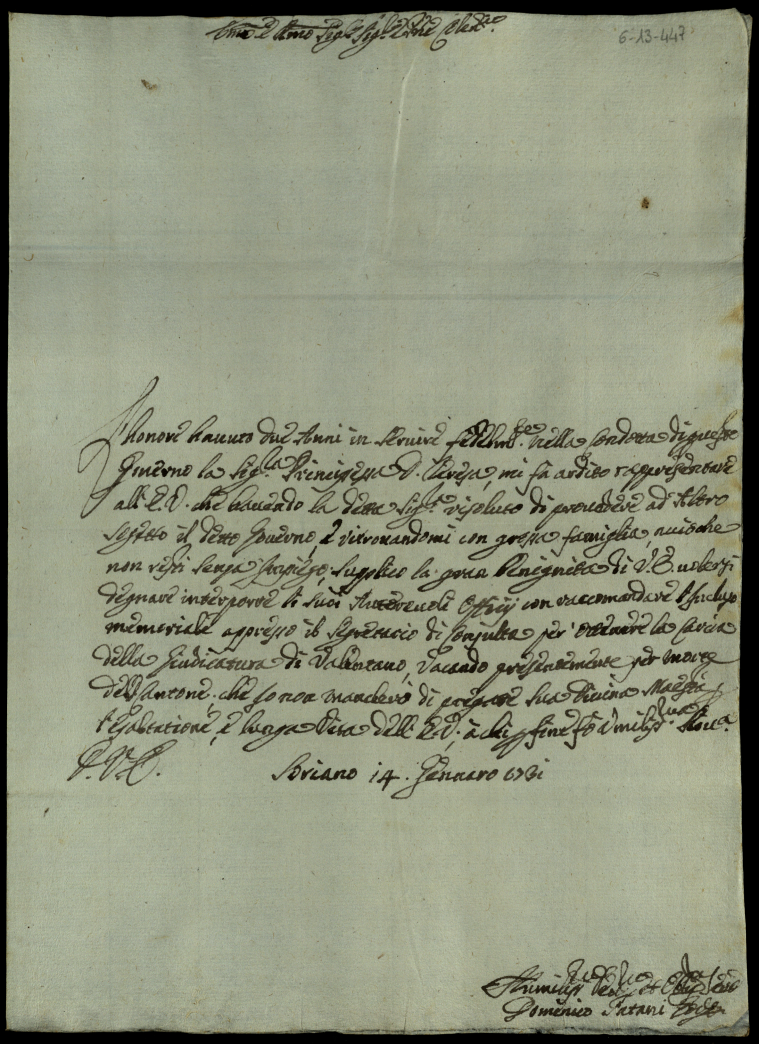 6-13-447
Em̃o e Rm̃o Sig.r Sig.r Pr̃one Col.mo
L'honore hauuto due Anni in seruire fedelm.te nella Condotta di questo
Gouerno la Sig.ra Principessa D. Teresa, mi fà ardito rappresentare
all'E.V. che hauendo la detta Sig.ra risoluto di prouedere ad Altro
sogetto il detto Gouerno, e ritrouandomi con grossa famiglia, acciò che
non resti senza Impiego, supplico la gran benignità di V.E. uolersi
degnare interporre li suoi Autoreuoli Offitij con raccomandare l'Incluso
memoriale appresso il Segretario di Consulta per ottenere la Carica
della Giudicatura di Valentano, vacando presentemente per morte
dell'Antone, che Io non mancherò di pregare Sua Diuina Maestà
l'esaltatione, e lunga Vita dell'E.V.,
D.V.E.
Soriano 14. Gennaro 1731
Humiliss.mo Deu.mo et Obl.mo Seru.re
Domenico Fatati